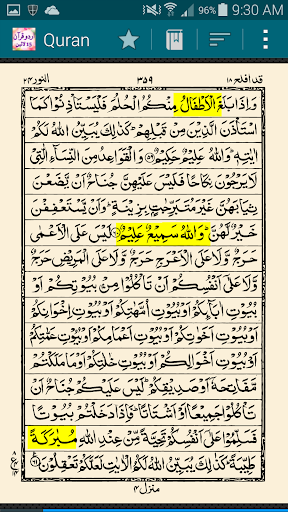 9:30 AM
Quran
اردو قرآن
قد افلح ١٨ ٣٥٩ النور ٢٤
وَاِذَا بَلَغَ الْاَطْفَالُ مِنْكُمُ الْحُلُمَ فَلْيَسْتَاْذِنُوْا كَمَا
اسْتَاْذَنَ الَّذِيْنَ مِنْ قَبْلِهِمْ ؕ كَذٰلِكَ يُبَيِّنُ اللّٰهُ لَكُمْ
اٰيٰتِهٖ ؕ وَاللّٰهُ عَلِيْمٌ حَكِيْمٌ ﴿٥٩﴾ وَالْقَوَاعِدُ مِنَ النِّسَآءِ الّٰتِيْ
لَا يَرْجُوْنَ نِكَاحًا فَلَيْسَ عَلَيْهِنَّ جُنَاحٌ اَنْ يَّضَعْنَ
ثِيَابَهُنَّ غَيْرَ مُتَبَرِّجٰتٍۭ بِزِيْنَةٍ ؕ وَاَنْ يَّسْتَعْفِفْنَ
خَيْرٌ لَّهُنَّ ؕ وَاللّٰهُ سَمِيْعٌ عَلِيْمٌ ﴿٦٠﴾ لَيْسَ عَلَى الْاَعْمٰى
حَرَجٌ وَّلَا عَلَى الْاَعْرَجِ حَرَجٌ وَّلَا عَلَى الْمَرِيْضِ حَرَجٌ
وَّلَا عَلٰٓى اَنْفُسِكُمْ اَنْ تَاْكُلُوْا مِنْۢ بُيُوْتِكُمْ اَوْ
بُيُوْتِ اٰبَآئِكُمْ اَوْ بُيُوْتِ اُمَّهٰتِكُمْ اَوْ بُيُوْتِ اِخْوَانِكُمْ
اَوْ بُيُوْتِ اَخَوٰتِكُمْ اَوْ بُيُوْتِ اَعْمَامِكُمْ اَوْ بُيُوْتِ عَمّٰتِكُمْ
اَوْ بُيُوْتِ اَخْوَالِكُمْ اَوْ بُيُوْتِ خٰلٰتِكُمْ اَوْ مَا مَلَكْتُمْ
مَّفَاتِحَهٗٓ اَوْ صَدِيْقِكُمْ ؕ لَيْسَ عَلَيْكُمْ جُنَاحٌ اَنْ
تَاْكُلُوْا جَمِيْعًا اَوْ اَشْتَاتًا ؕ فَاِذَا دَخَلْتُمْ بُيُوْتًا
فَسَلِّمُوْا عَلٰٓى اَنْفُسِكُمْ تَحِيَّةً مِّنْ عِنْدِ اللّٰهِ مُبٰرَكَةً
طَيِّبَةً ؕ كَذٰلِكَ يُبَيِّنُ اللّٰهُ لَكُمُ الْاٰيٰتِ لَعَلَّكُمْ تَعْقِلُوْنَ ﴿٦١﴾
منزل ٤